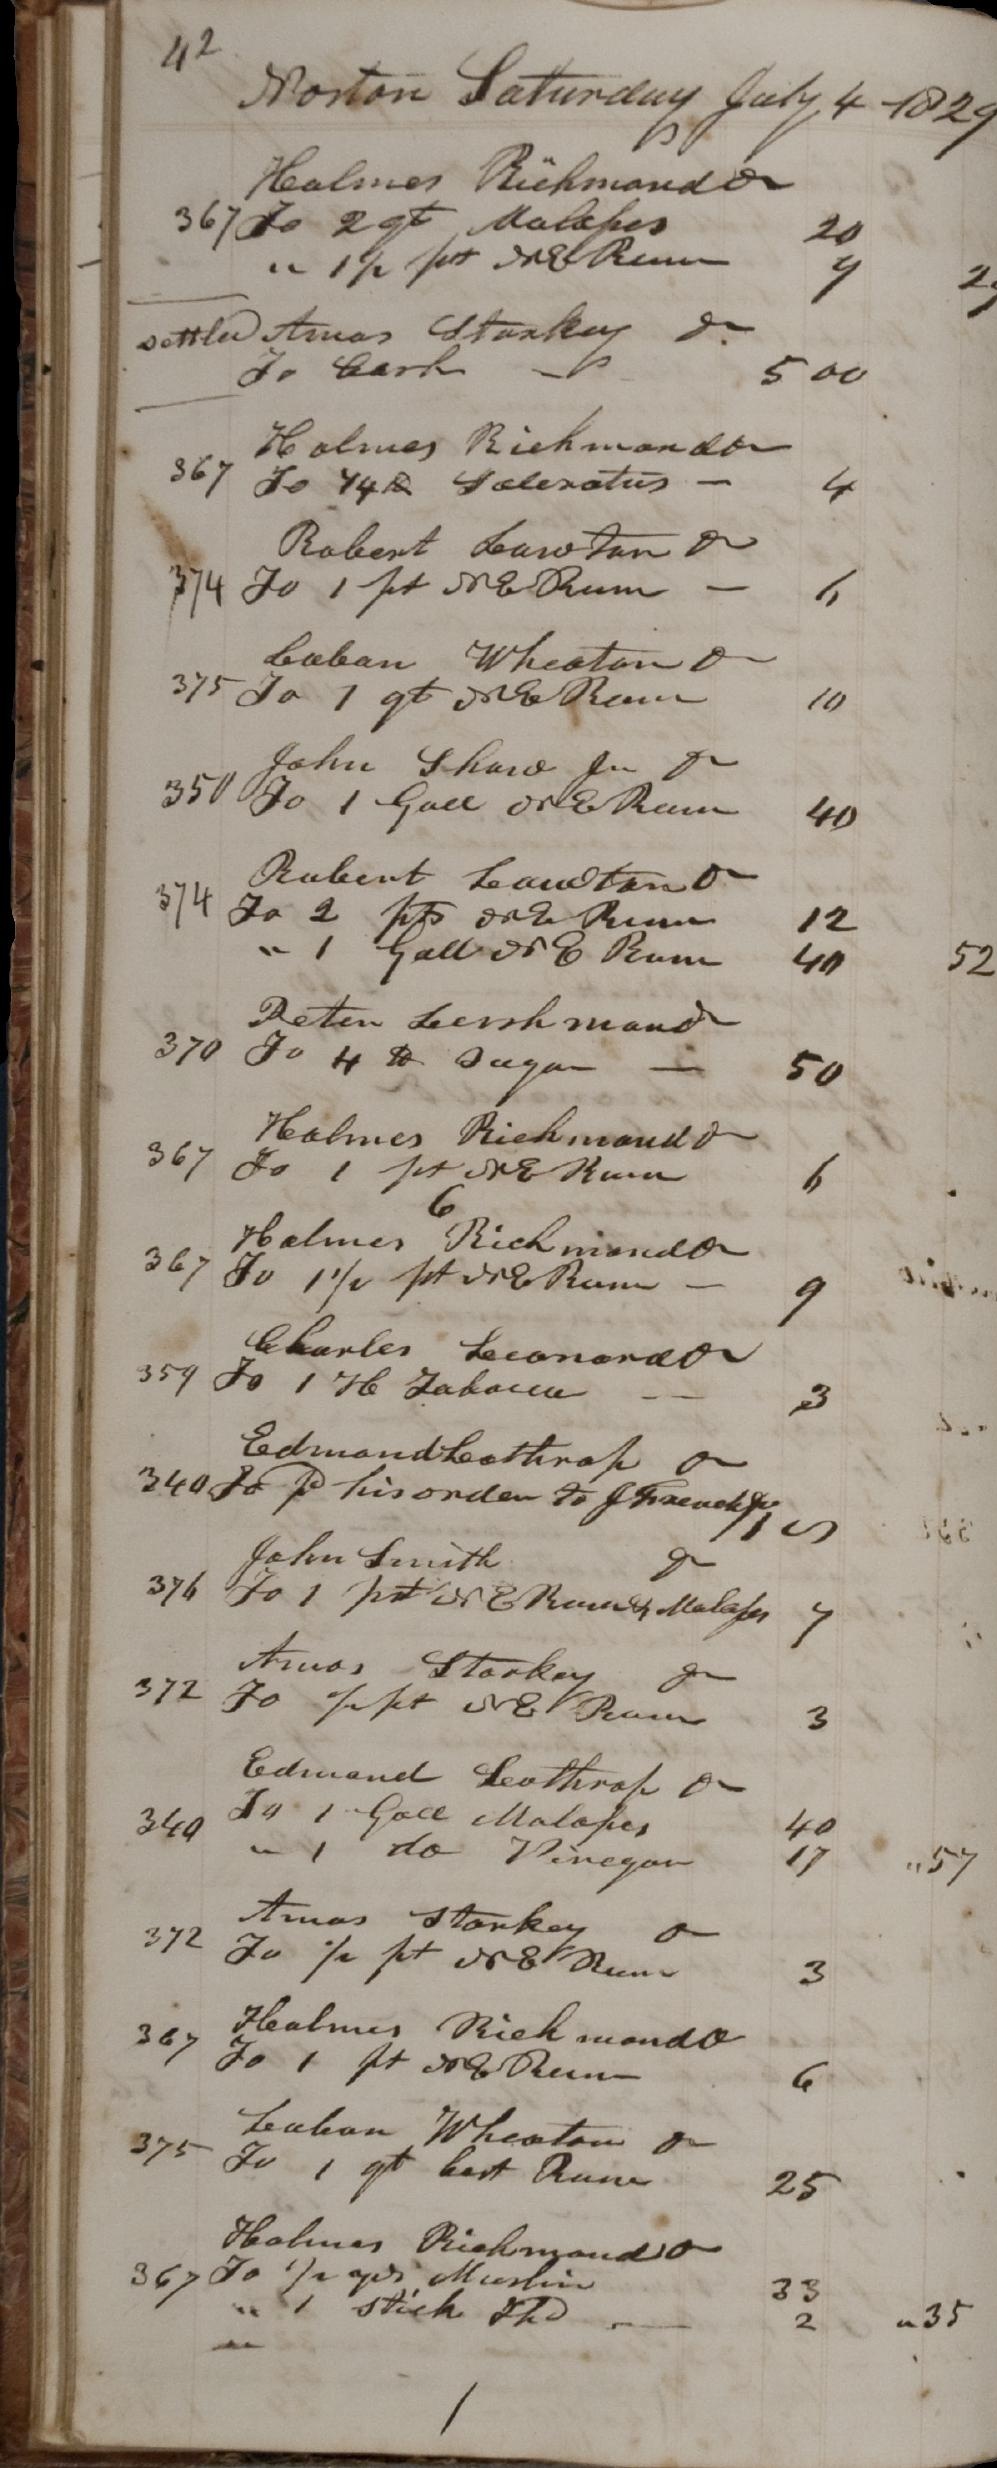 42
Norton Saturday July 4 1829
Holmes Richmond Dr
367 To 2 qt Molasses 20
" 1 1/2 pt N E Rum 9 29
settled Amos Starkey Dr
To Cash — 5 00
Holmes Richmond Dr
367 To 1/4 lb Saleratus — 4
Robert Lawton Dr
374 To 1 pt N E Rum — 6
Laban Wheaton Dr
375 To 1 qt N E Rum 10
John Shaw Jr Dr
350 To 1 Gall N E Rum 40
Robert Lawton Dr
374 To 2 pts N E Rum 12
" 1 Gall N E Rum 40 52
Peter Dr
370 To 4 lb Sugar — 50
Holmes Richmond Dr
367 To 1 pt N E Rum 6
6
Holmes Richmond Dr
367 To 1 1/2 pt N E Rum — 9
Charles Leonard Dr
359 To 1 H Tobacco — 3
Edmond Lothrop Dr
340 To pd his order to J French Jr
John Smith Dr
376 To 1 pt N E Rum & Molasses 7
Amos Starkey Dr
372 To 1/2 pt N E Rum 3
Edmand Lothrop Dr
340 To 1 Gall Molasses 40
" 1 do Vinegar 17 " 57
Amos Starkey Dr
372 To 1/2 pt N E Rum 3
Holmes Richmond Dr
367 To 1 pt N E Rum 6
Laban Wheaton Dr
375 To 1 qt best Rum 25
Holmes Richmond Dr
367 To 1/2 yds Muslin 33
" 1 stick Thd — 2 " 35
"